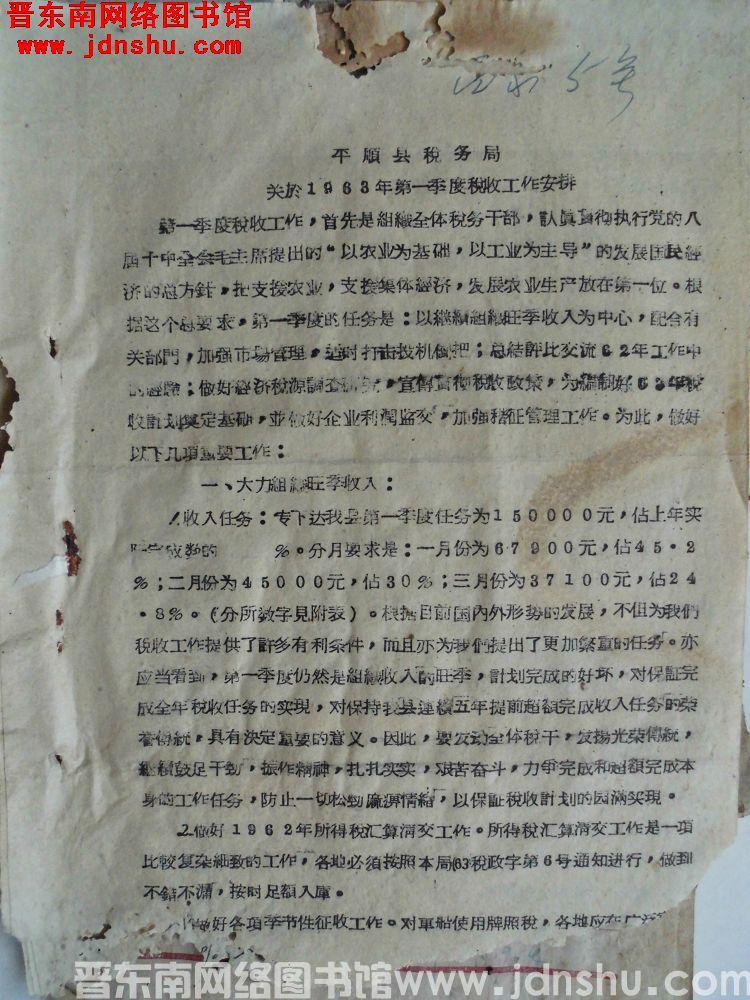 晋东南网络图书馆
www.jdnshu.com
5号
平順县税务局
关於1963年第一季度税收工作安排
第一季度税收工作，首先是組織全体税务干部，認眞貫彻执行党的八
届十中全会毛主席提出的“以农业为基础，以工业为主导”的发展国民經
济的总方針，把支援农业，支援集体經济，发展农业生产放在第一位。根
据这个总要求，第一季度的任务是：以継續組織旺季收入为中心，配合有
关部門，加强市場管理，适时打击投机倒把；总結評比交流62年工作中
的經驗；做好經济税源調查研究，宣傳貫彻税收政策，为編制好63年税
收計划奠定基础，並做好企业利潤监交，加强稽征管理工作。为此，做好
以下几項重要工作：
一、大力組織旺季收入：
1.收入任务：专下达我县第一季度任务为150000元，佔上年实
际完成数的　　%。分月要求是：一月份为67900元，佔45·2
%；二月份为45000元，佔30%；三月份为37100元，佔24
·8%。（分所数字見附表）。根据目前国內外形势的发展，不但为我們
税收工作提供了許多有利条件，而且亦为我們提出了更加繁重的任务。亦
应当看到，第一季度仍然是組織收入的旺季，計划完成的好坏，对保証完
成全年税收任务的实現，对保持我县連續五年提前超額完成收入任务的荣
誉傳統，具有決定重要的意义。因此，要发动全体税干，发揚光荣傳統，
継續鼓足干勁，振作精神，扎扎实实，艰苦奋斗，力爭完成和超額完成本
身的工作任务，防止一切松勁麻痹情緒，以保証税收計划的园滿实現。
2.做好1962年所得税汇算清交工作。所得税汇算清交工作是一項
比較复杂細致的工作，各地必須按照本局(63)税政字第6号通知进行，做到
不錯不漏，按时足額入庫。
做好各項季节性征收工作。对車船使用牌照税，各地应在
晋东南网络图书馆www.jdnshu.com